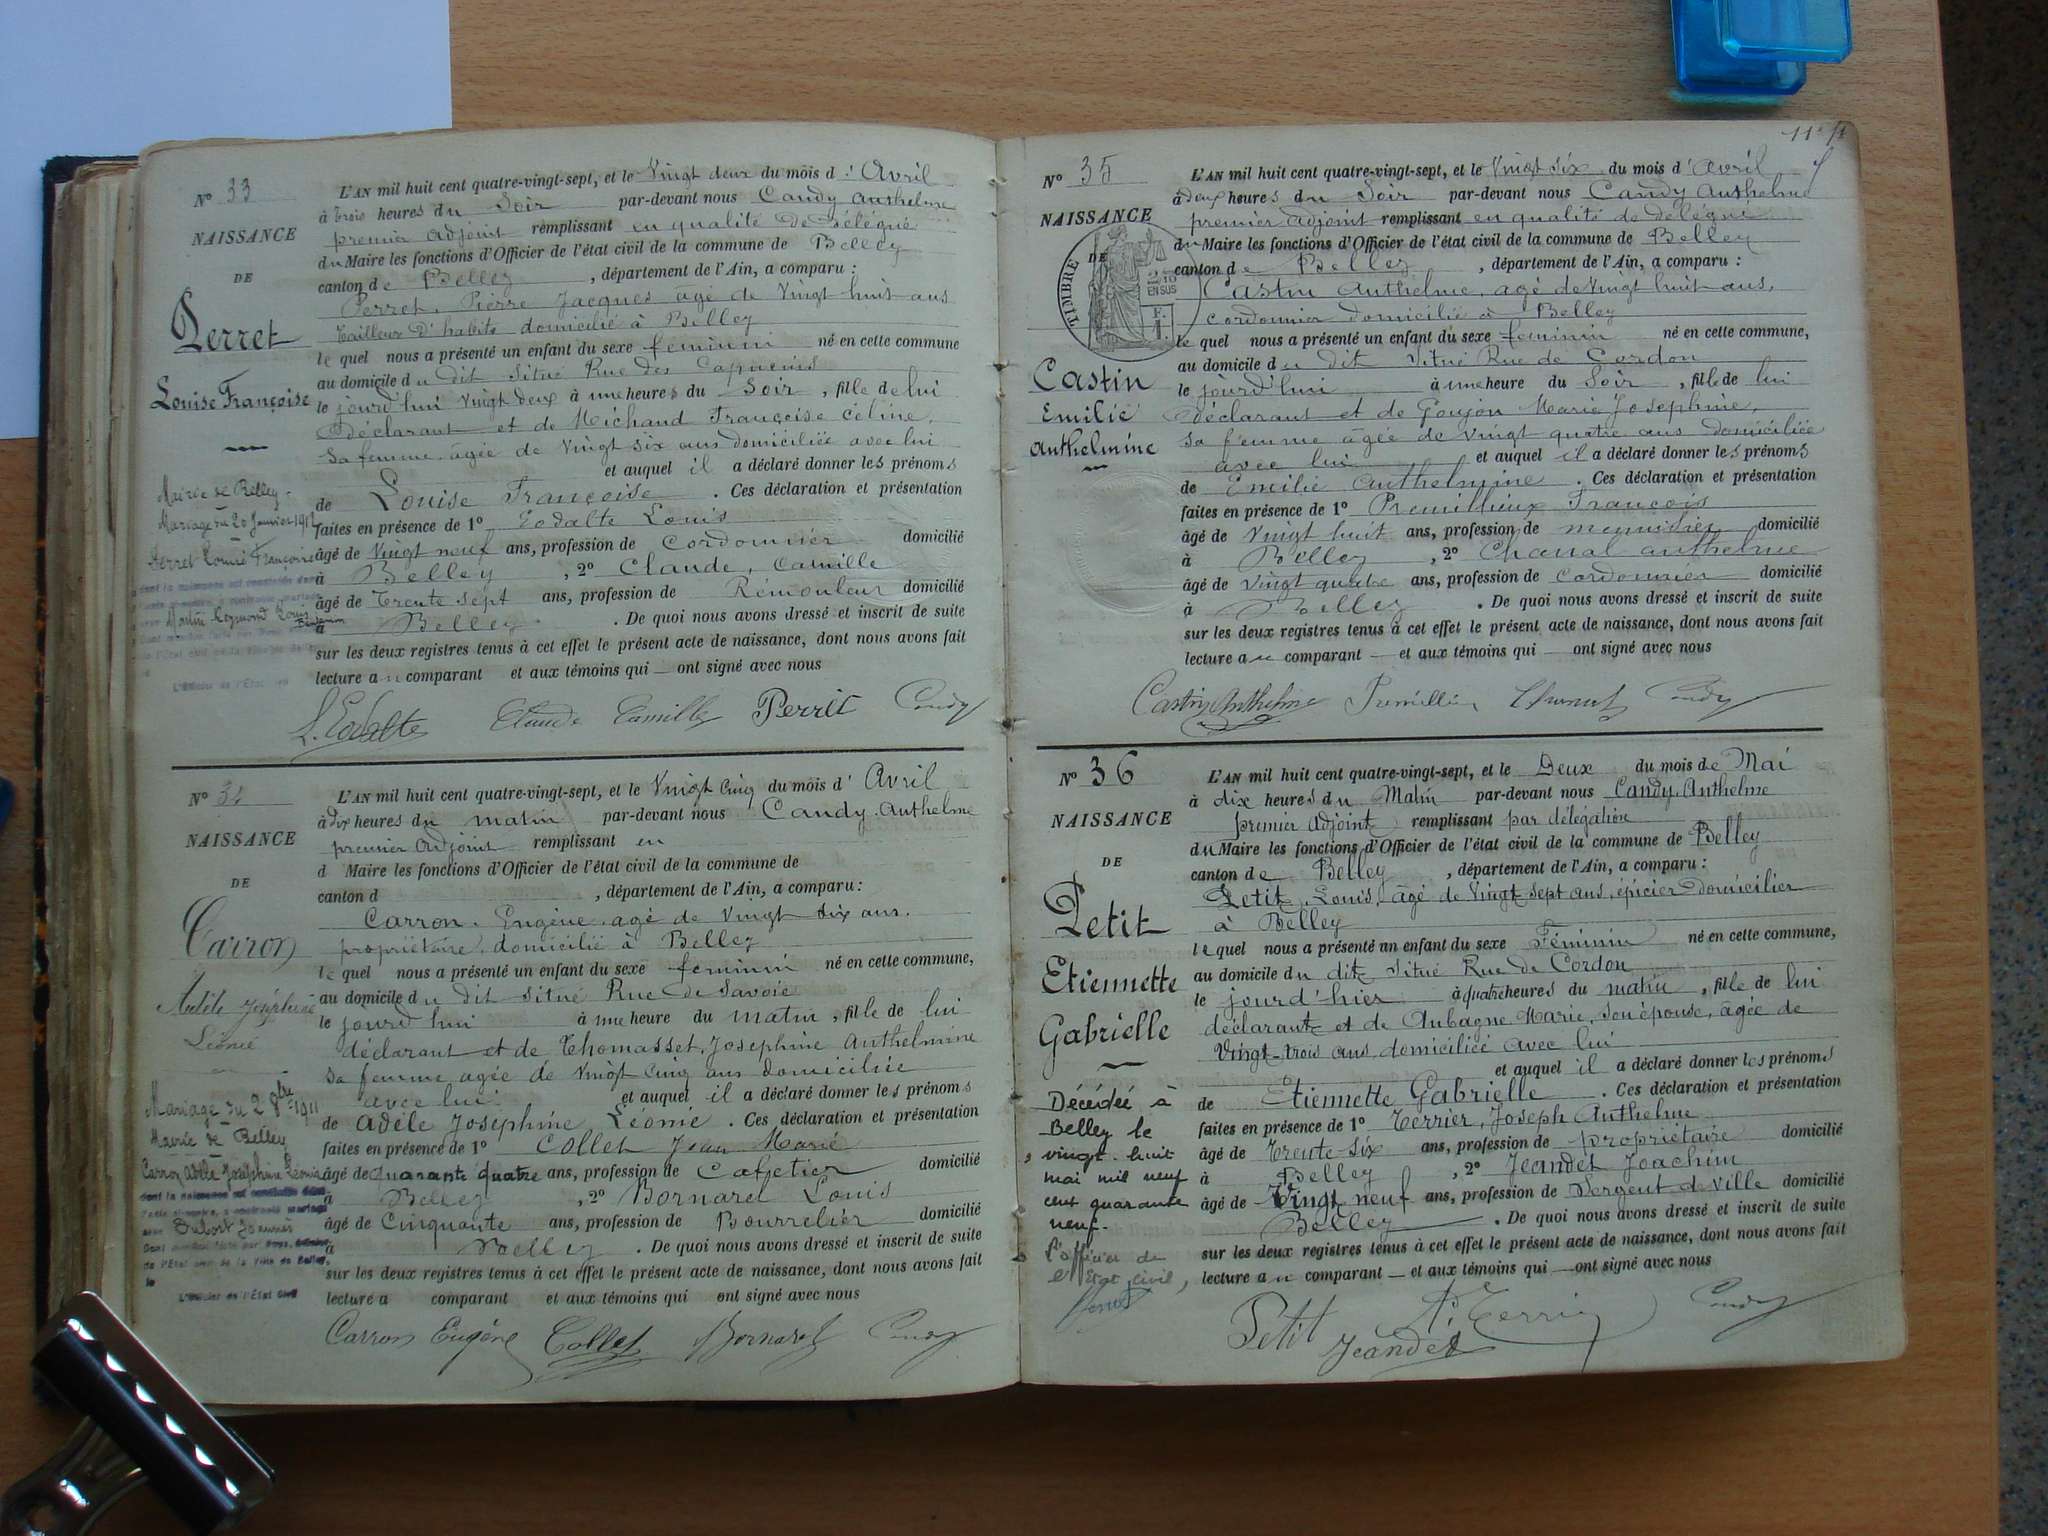 N° 33
NAISSANCE
DE
Perret
Louise Françoise
Mairie de Belley
Mariage du 20 Janvier 191
Perret Louise Françoise
dont la naissance est constatée dans
Martin Reymond Louis
Benjamin
L'Officier de l'Etat civil
L'AN mil huit cent quatre-vingt-sept, et le Vingt deux du mois d'Avril
à trois heures du Soir par-devant nous Candy Anthelme
premier adjoint remplissant en qualité de Délégué
du Maire les fonctions d'Officier de l'état civil de la commune de Belley
canton de Belley, département de l'Ain, a comparu :
Perret, Pierre Jacques âgé de Vingt huit ans
tailleur d'habits domicilié à Belley
lequel nous a présenté un enfant du sexe feminin né en cette commune
au domicile du dit situé Rue des Capucins
le jourd'hui Vingt deux à une heures du Soir, fille de lui
déclarant et de Michaud Françoise Céline,
sa femme âgée de vingt six ans domiciliée avec lui
et auquel il a déclaré donner les prénoms
de Louise Françoise. Ces déclaration et présentation
faites en présence de 1° Eodalte Louis
âgé de Vingt neuf ans, profession de Cordonnier domicilié
à Belley, 2° Claude, Camille
âgé de Trente sept ans, profession de Rémouleur domicilié
à Belley. De quoi nous avons dressé et inscrit de suite
sur les deux registres tenus à cet effet le présent acte de naissance, dont nous avons fait
lecture au comparant et aux témoins qui — ont signé avec nous
L. Eodalte Claude Camille Perret Candy
N° 34
NAISSANCE
DE
Carron
Adèle Joséphine
Léonie
Mariage du 2 8bre 1911
Mairie de Belley
Carron Adèle Joséphine Léonie
dont la naissance est constatée dans
l'acte ci-contre, a contracté mariage
avec Dufort Joannès
de l'Etat civil de la ville de Belley,
le
L'Officier de l'Etat Civil
L'AN mil huit cent quatre-vingt-sept, et le Vingt Cinq du mois d'Avril
à dix heures du matin par-devant nous Candy Anthelme
premier adjoint remplissant en
d Maire les fonctions d'Officier de l'état civil de la commune de
canton d , département de l'Ain, a comparu :
Carron, Eugène âgé de Vingt six ans,
propriétaire, domicilié à Belley
lequel nous a présenté un enfant du sexe feminin né en cette commune,
au domicile du dit situé Rue de Savoie
le jourd'hui à une heure du matin, fille de lui
déclarant et de Thomasset, Josephine Anthelmine
sa femme agée de vingt cinq ans domiciliée
avec lui et auquel il a déclaré donner les prénoms
de Adèle Joséphine Léonie. Ces déclaration et présentation
faites en présence de 1° Collet Jean Marie
âgé de quarante quatre ans, profession de Cafetier domicilié
à Belley, 2° Bornarel Louis
âgé de Cinquante ans, profession de Bourrelier domicilié
à Belley. De quoi nous avons dressé et inscrit de suite
sur les deux registres tenus à cet effet le présent acte de naissance, dont nous avons fait
lecture a comparant et aux témoins qui ont signé avec nous
Carron Eugène Collet Bornarel Candy
N° 35
NAISSANCE
DE
TIMBRE
EN SUS
Castin
Emilie
Anthelmine
L'AN mil huit cent quatre-vingt-sept, et le Vingt six du mois d'Avril
à deux heures du Soir par-devant nous Candy Anthelme
premier adjoint remplissant en qualité de délégué
du Maire les fonctions d'Officier de l'état civil de la commune de Belley
canton de Belley, département de l'Ain, a comparu :
Castin Anthelme, agé de Vingt huit ans,
cordonnier domicilié à Belley
lequel nous a présenté un enfant du sexe feminin né en cette commune,
au domicile du dit situé Rue de Cordon
le jourd'hui à une heure du Soir, fille de lui
déclarant et de Goujon Marie Josephine,
sa femme âgée de vingt quatre ans domiciliée
avec lui et auquel il a déclaré donner les prénoms
de Emilie Anthelmine. Ces déclaration et présentation
faites en présence de 1° Premillieux François
âgé de Vingt huit ans, profession de menuisier domicilié
à Belley, 2° Chanal Anthelme
âgé de vingt quatre ans, profession de Cordonnier domicilié
à Belley. De quoi nous avons dressé et inscrit de suite
sur les deux registres tenus à cet effet le présent acte de naissance, dont nous avons fait
lecture au comparant — et aux témoins qui — ont signé avec nous
Castin Anthelme Candy
N° 36
NAISSANCE
DE
Petit
Etiennette
Gabrielle
Décédée à
Belley le
vingt huit
mai mil neuf
cent quarante
neuf.
l'officier de
l'Etat civil,
L'AN mil huit cent quatre-vingt-sept, et le Deux du mois de Mai
à dix heures du Matin par-devant nous Candy Anthelme
premier adjoint remplissant par délégation
du Maire les fonctions d'Officier de l'état civil de la commune de Belley
canton de Belley, département de l'Ain, a comparu :
Petit, Louis, âgé de Vingt sept ans, épicier domicilier
à Belley
lequel nous a présenté un enfant du sexe Féminin né en cette commune,
au domicile du dit situé Rue de Cordon
le jourd'hier à quatre heures du matin, fille de lui
déclarant et de Aubagne Marie, son épouse, âgée de
Vingt-trois ans domiciliée avec lui
et auquel il a déclaré donner les prénoms
de Etiennette Gabrielle. Ces déclaration et présentation
faites en présence de 1° Terrier, Joseph Anthelme
âgé de Trente-six ans, profession de propriétaire domicilié
à Belley, 2° Jeandet Joachim
âgé de Vingt neuf ans, profession de Sergent de Ville domicilié
Belley. De quoi nous avons dressé et inscrit de suite
sur les deux registres tenus à cet effet le présent acte de naissance, dont nous avons fait
lecture au comparant — et aux témoins qui — ont signé avec nous
Petit Jeandet Terrier Candy